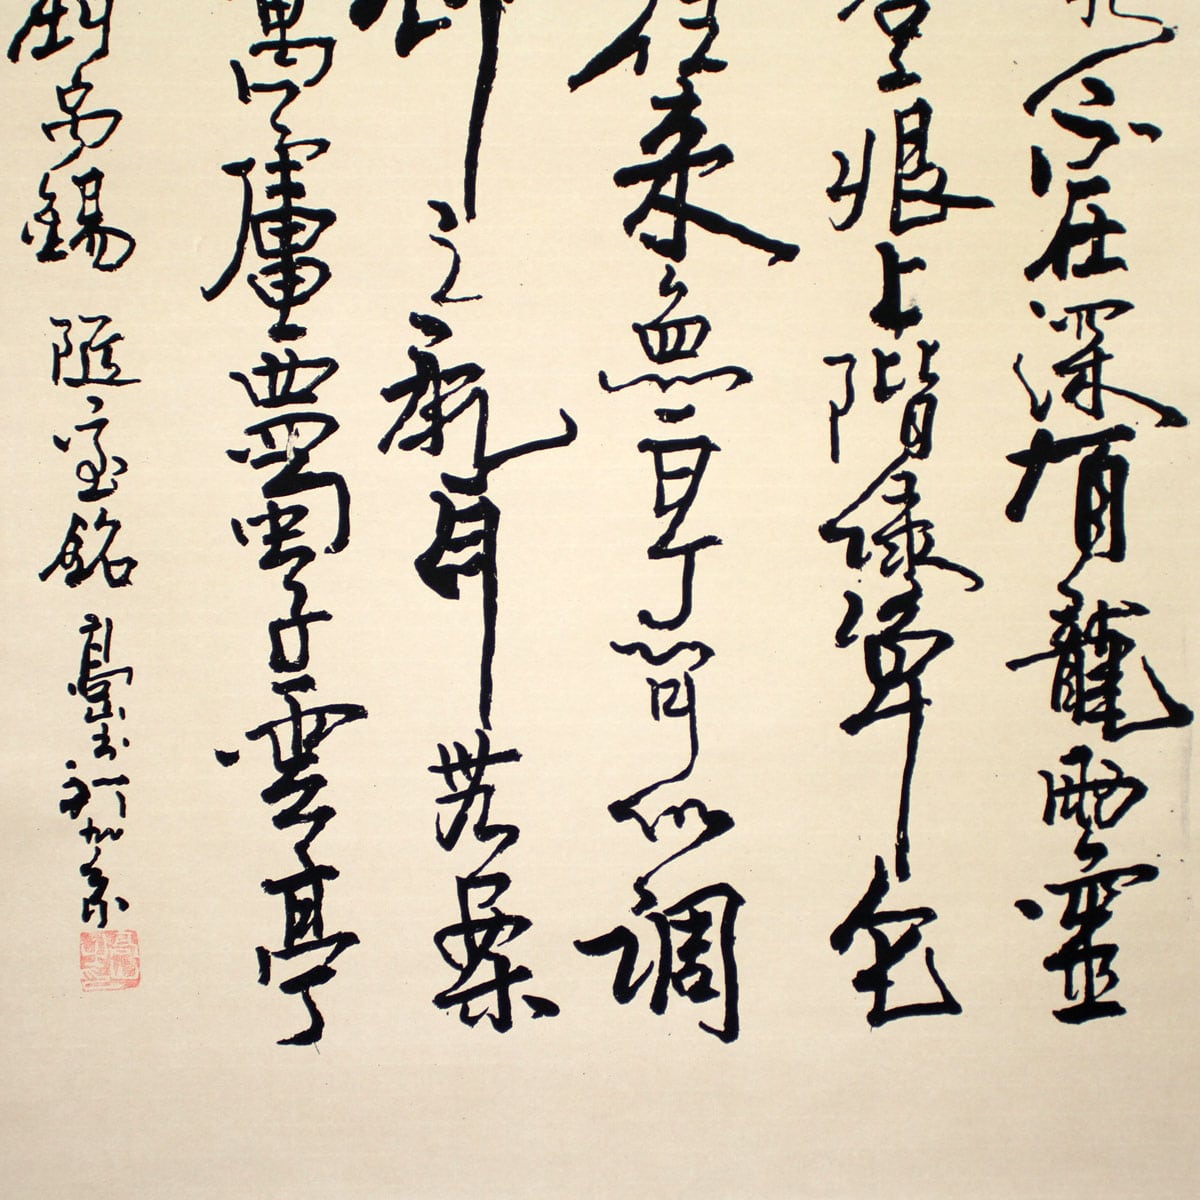 不在深有龍靈
苔痕上階綠草色
往來無白丁可以調
之亂耳無案
葛廬西蜀子雲亭
劉禹錫 陋室銘